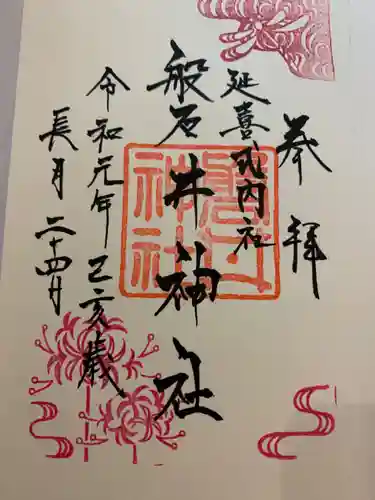 奉拝
延喜式内社
般石井神社
令和元年己亥歳
長月二十四日